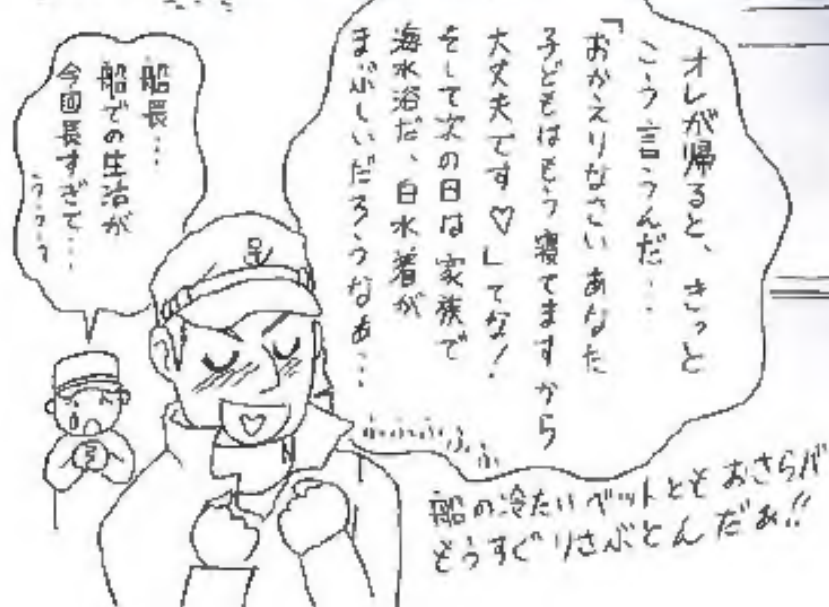 オレが帰ると、きっと
こう言うんだ…
「おかえりなさい あなた
子どもはもう寝てますから
大丈夫です♡」てな!
そして次の日は家族で
海水浴だ、白水着が
まぶしいだろうなあ…
ふふふふ
船長…
船での生活が
今回長すぎて…
うううう
船の冷たいベットともおさらば
もうすぐりさぶとんだぁ!!